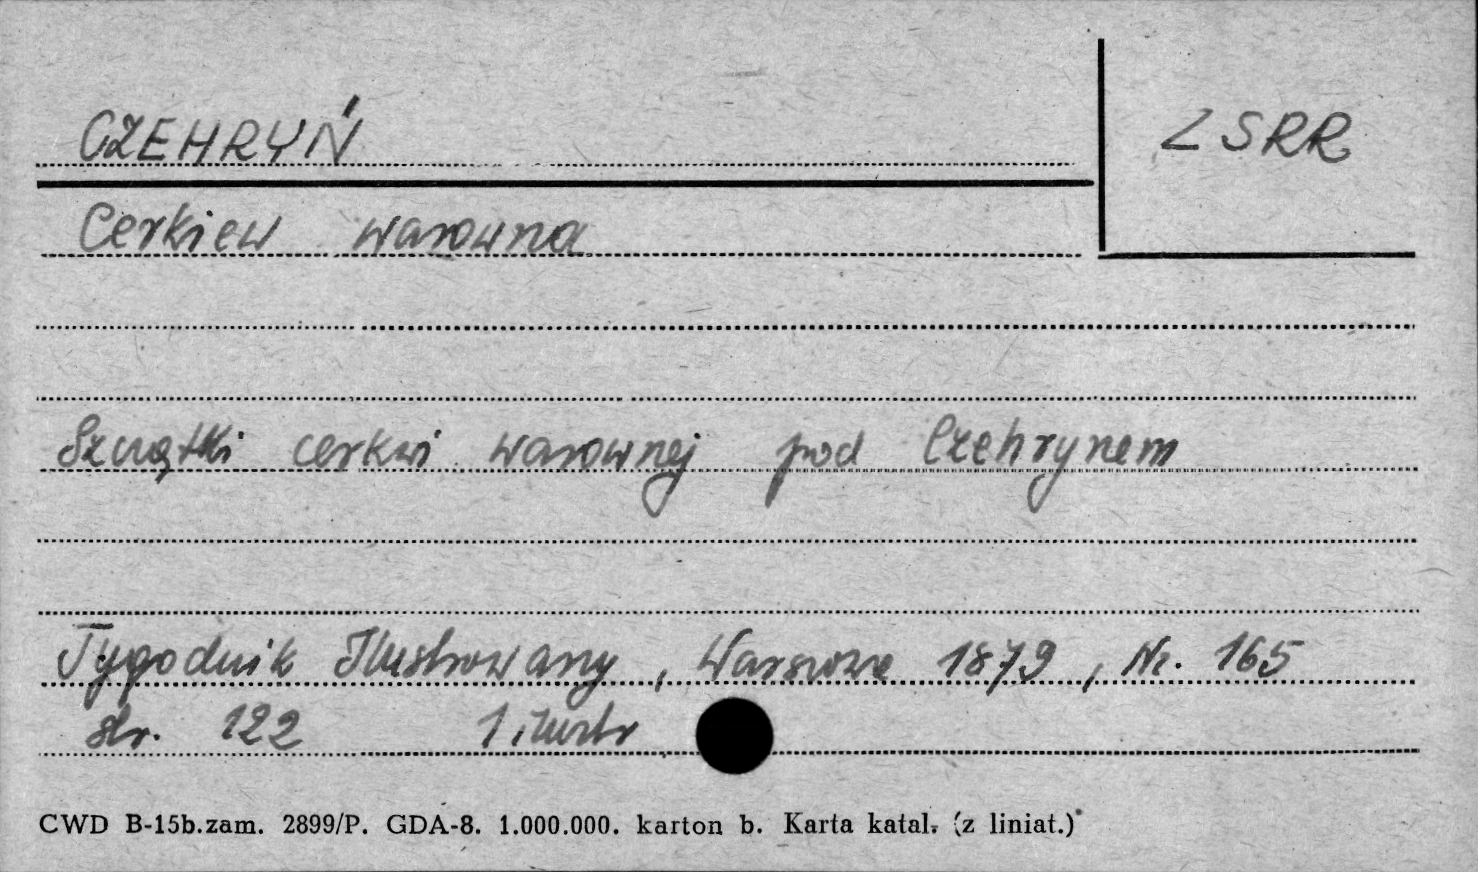 CZEHRYŃ
ZSRR
Cerkiew warowna
Szczątki cerkwi warownej pod Czehrynem
Tygodnik Ilustrowany, Warszawa 1879, Nr. 165
str. 122 1 ilustr
CWD B-15b.zam. 2899/P. GDA-8. 1.000.000. karton b. Karta katal. (z liniat.)